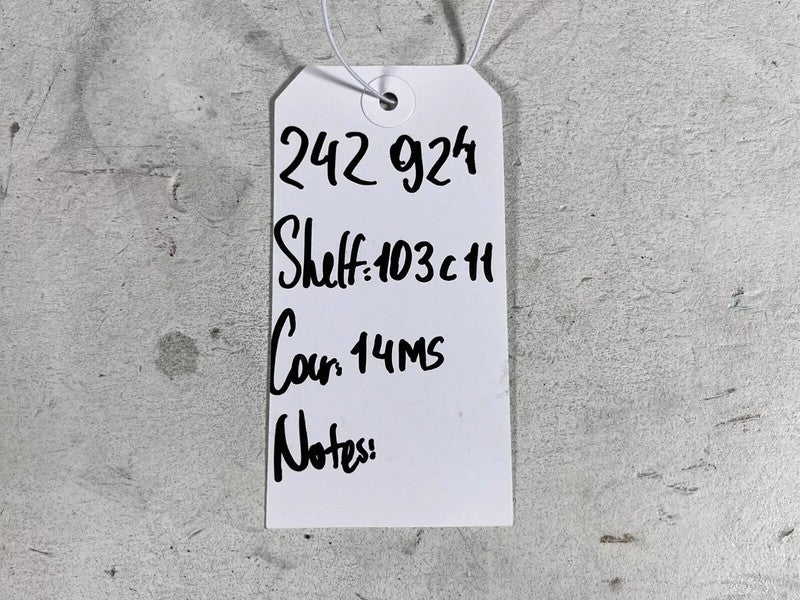 242 924
Shelf: 103 c 11
Car: 14MS
Notes: